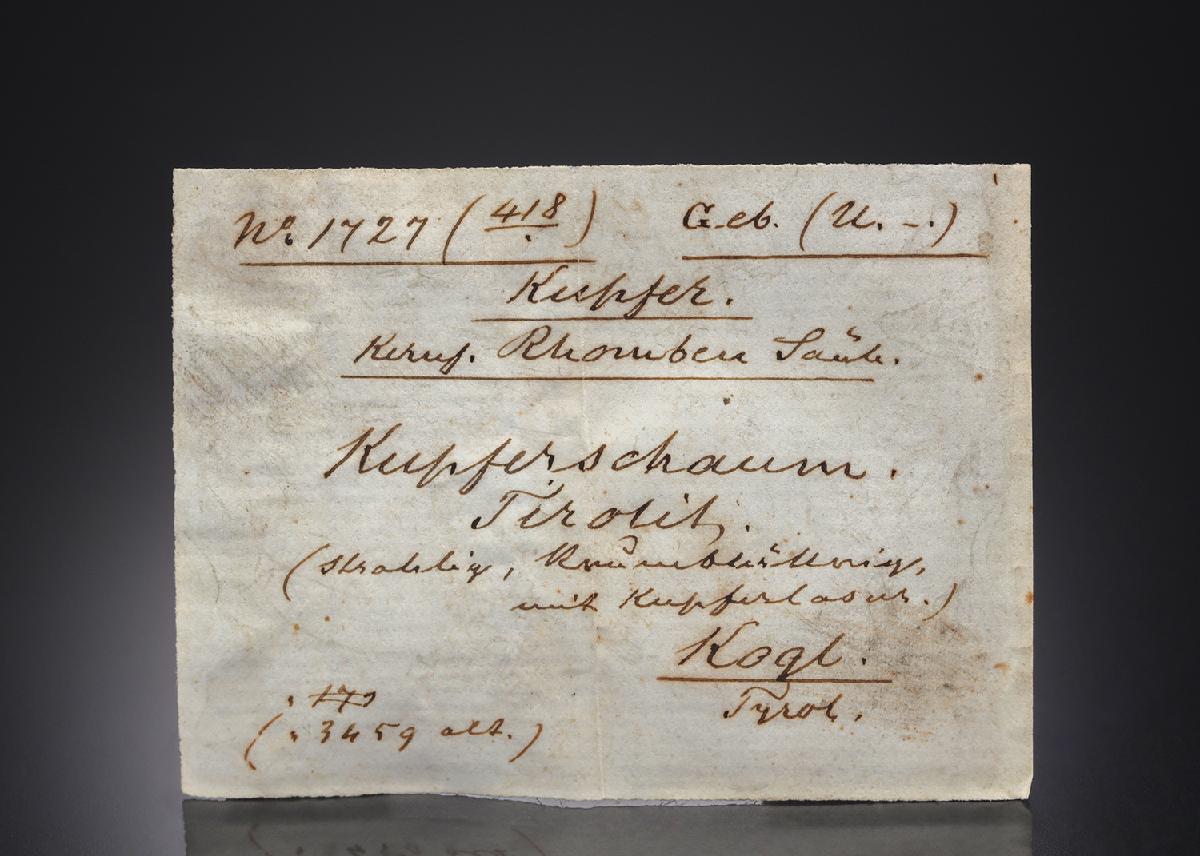 No. 1727 (418) Geb. (U. -.)
Kupfer.
Kernf. Rhomben Säule.
Kupferschaum.
Tirolit.
(strahlig, krummblättrig,
mit Kupferlasur.)
Kogl.
Tyrol.
170
(3459 alt.)